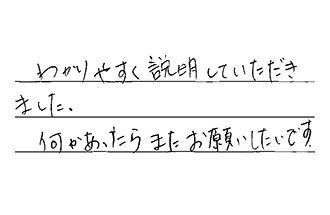 わかりやすく説明していただき
ました。
何かあったらまたお願いしたいです